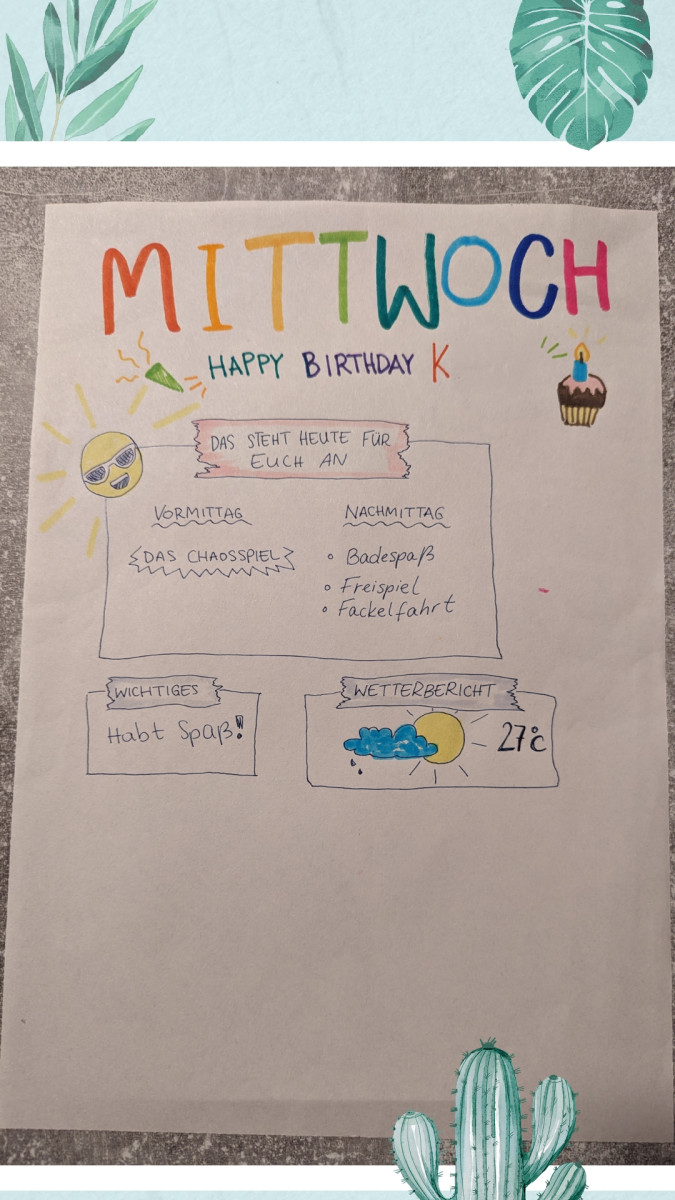 MITTWOCH
HAPPY BIRTHDAY K
DAS STEHT HEUTE FÜR
EUCH AN
VORMITTAG
DAS CHAOSSPIEL
NACHMITTAG
Badespaß
Freispiel
Fackelfahrt
WICHTIGES
Habt Spaß!
WETTERBERICHT
27°C